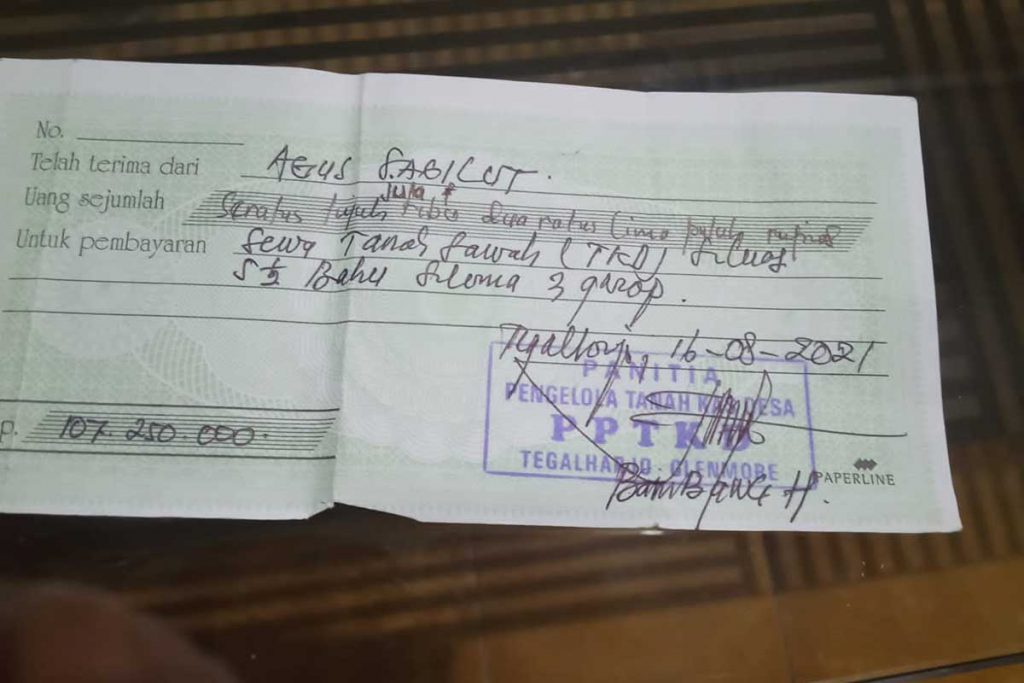 No.
Telah terima dari AGUS SABICUT.
Uang sejumlah Seratus tujuh juta Ribu dua ratus lima puluh rupiah
Untuk pembayaran Sewa Tanah Sawah (TKD) Seluas
5 1/2 Bahu Selama 3 garap.
Tegalharjo, 16-08-2021
PANITIA
PENGELOLA TANAH KAS DESA
PPTKD
TEGALHARJO - GLENMORE
p. 107.250.000.
BAMBANG H.
PAPERLINE